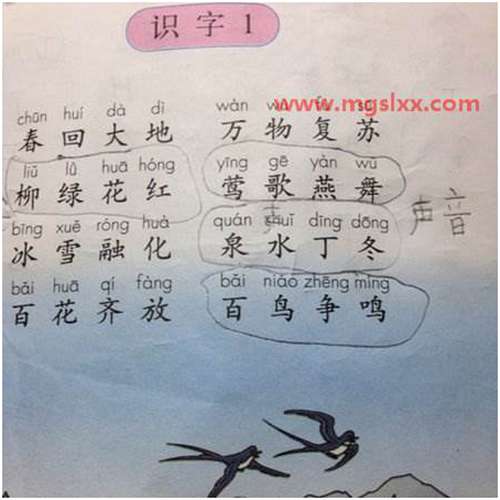 识字1
chūn huí dà dì wàn
www.mgslxx.com
春回大地 万物复苏
liǔ lǜ huā hóng yīng gē yàn wǔ
柳绿花红 莺歌燕舞
声音
bīng xuě róng huà quán shuǐ dīng dōng
冰雪融化 泉水丁冬
bǎi huā qí fàng bǎi niǎo zhēng míng
百花齐放 百鸟争鸣